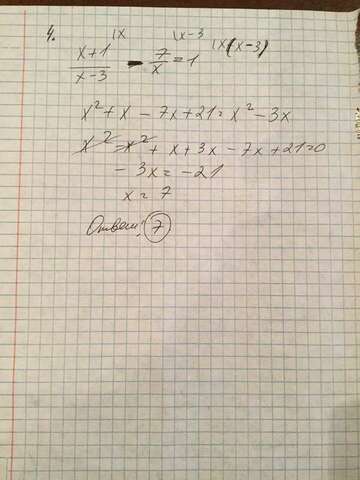 4.
x+1 |x / x-3 - 7 |x-3 / x = 1 |x(x-3)
x² + x - 7x + 21 = x² - 3x
x² = x² + x + 3x - 7x + 21 = 0
- 3x = -21
x = 7
Ответ: 7